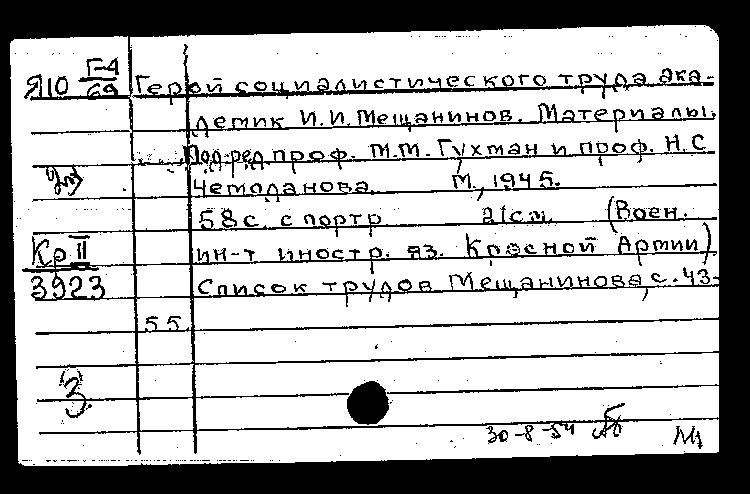 Я10 Г-4/69 Герой социалистического труда ака-
демик И.И. Мещанинов. Материалы.
Под ред. проф. М.М. Гухман и проф. Н.С.
Чемоданова. М., 1945.
58 с. с портр 21 см. (Воен.
ин-т иностр. яз. Красной Армии)
Кр II
3923 Список трудов Мещанинова, с. 43-
55.
3
30-8-54